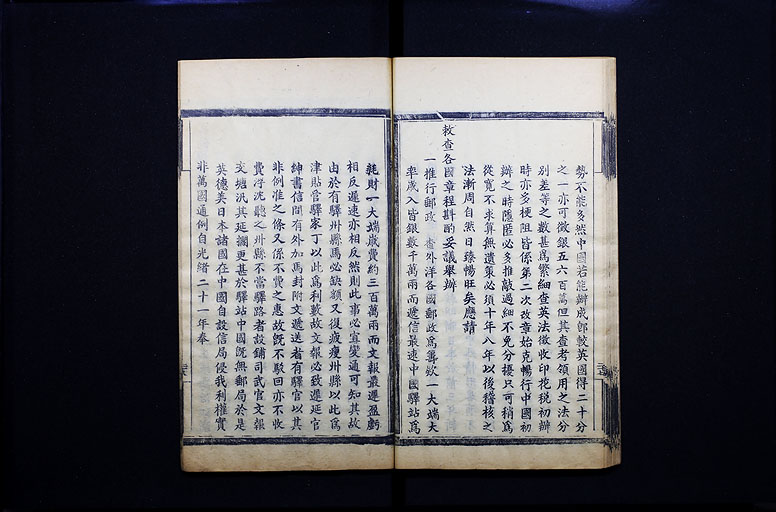 勢不能多然中國若能辦成卽較英國得二十分
之一亦可徵銀五六百萬但其查考領用之法分
別差等之數甚爲繁細查英法徵收印花稅初辦
時亦多梗阻皆係第二次改章始克暢行中國初
辦之時隱匿必多推敲過細不免分擾只可稍爲
從寬不求算無遺策必須十年八年以後稽核之
法漸周自然日臻暢旺矣應請
敕查各國章程斟酌妥議舉辦
一推行郵政 查外洋各國郵政爲籌欵一大端大
率歲入皆銀數千萬兩而遞信最速中國驛站爲
耗財一大端歲費約三百萬兩而文報最遲盈虧
相反遲速亦相反然則此事必宜變通可知其故
由於有驛州縣馬必缺額又復疲瘦州縣以此爲
津貼管驛家丁以此爲利藪故文報必致遲延官
紳書信間有外加馬封附文遞送者有驛官以其
非例准之條又係不費之惠故旣不駁回亦不收
費浮沈聽之州縣不當驛路者設鋪司武官文報
交塘汛其延擱更甚於驛站中國旣無郵局於是
英德美日本諸國在中國自設信局侵我利權實
非萬國通例自光緒二十一年奉